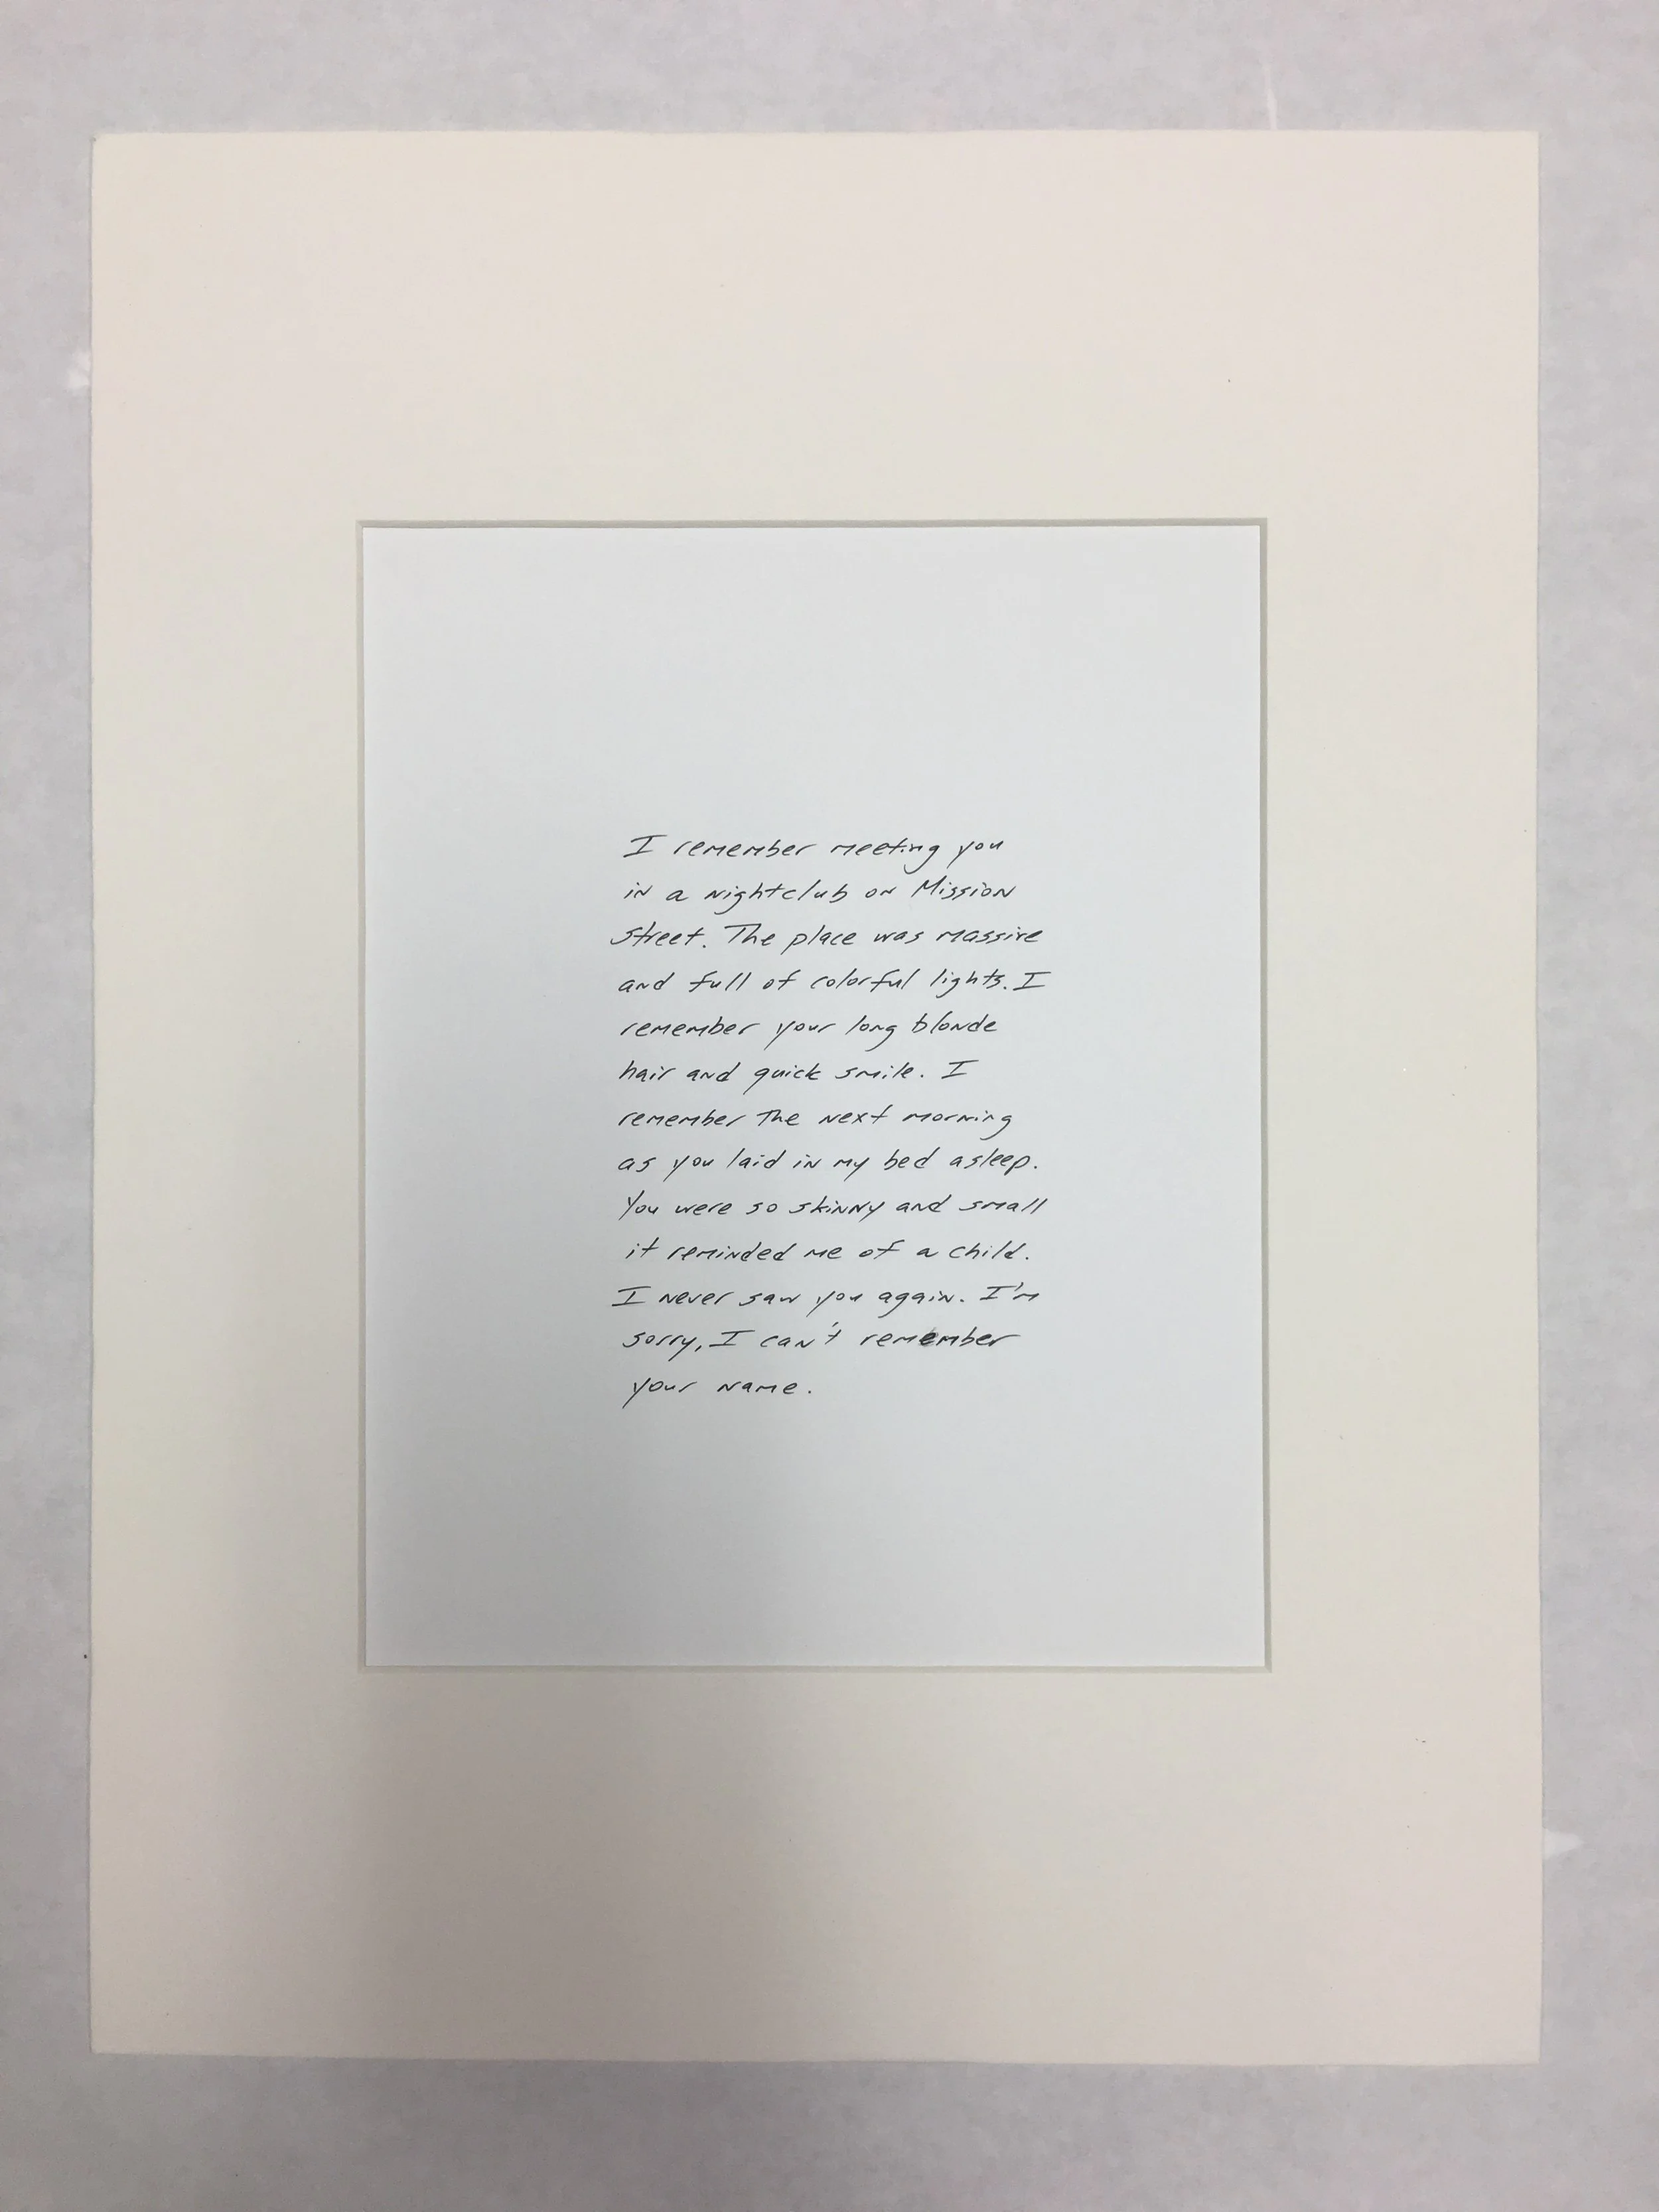 I remember meeting you
in a nightclub on Mission
street. The place was massive
and full of colorful lights. I
remember your long blonde
hair and quick smile. I
remember the next morning
as you laid in my bed asleep.
You were so skinny and small
it reminded me of a child.
I never saw you again. I'm
sorry, I can't remember
your name.